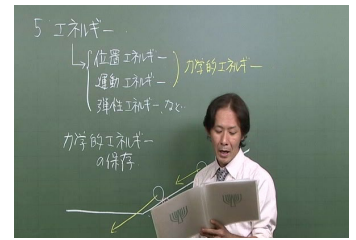 5 エネルギー
位置エネルギー
運動エネルギー
弾性エネルギー など…
力学的エネルギー
力学的エネルギー
の保存